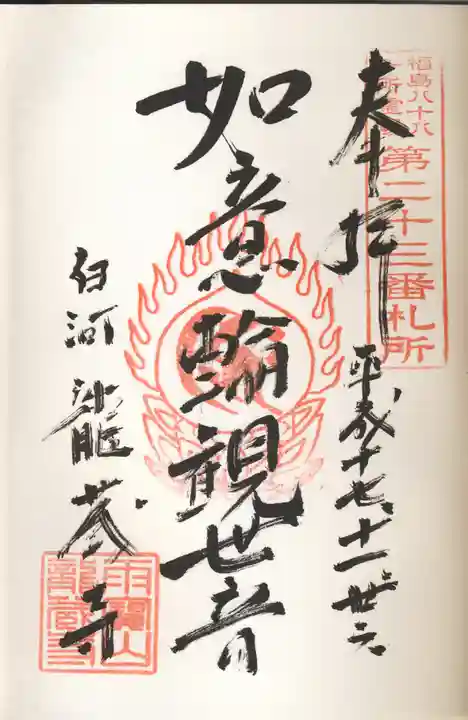 福島八十八
ヶ所霊場
第二十三番札所
奉拝
平成十七、十一、廿六
如意輪観世音
白河 龍蔵寺
龍蔵寺